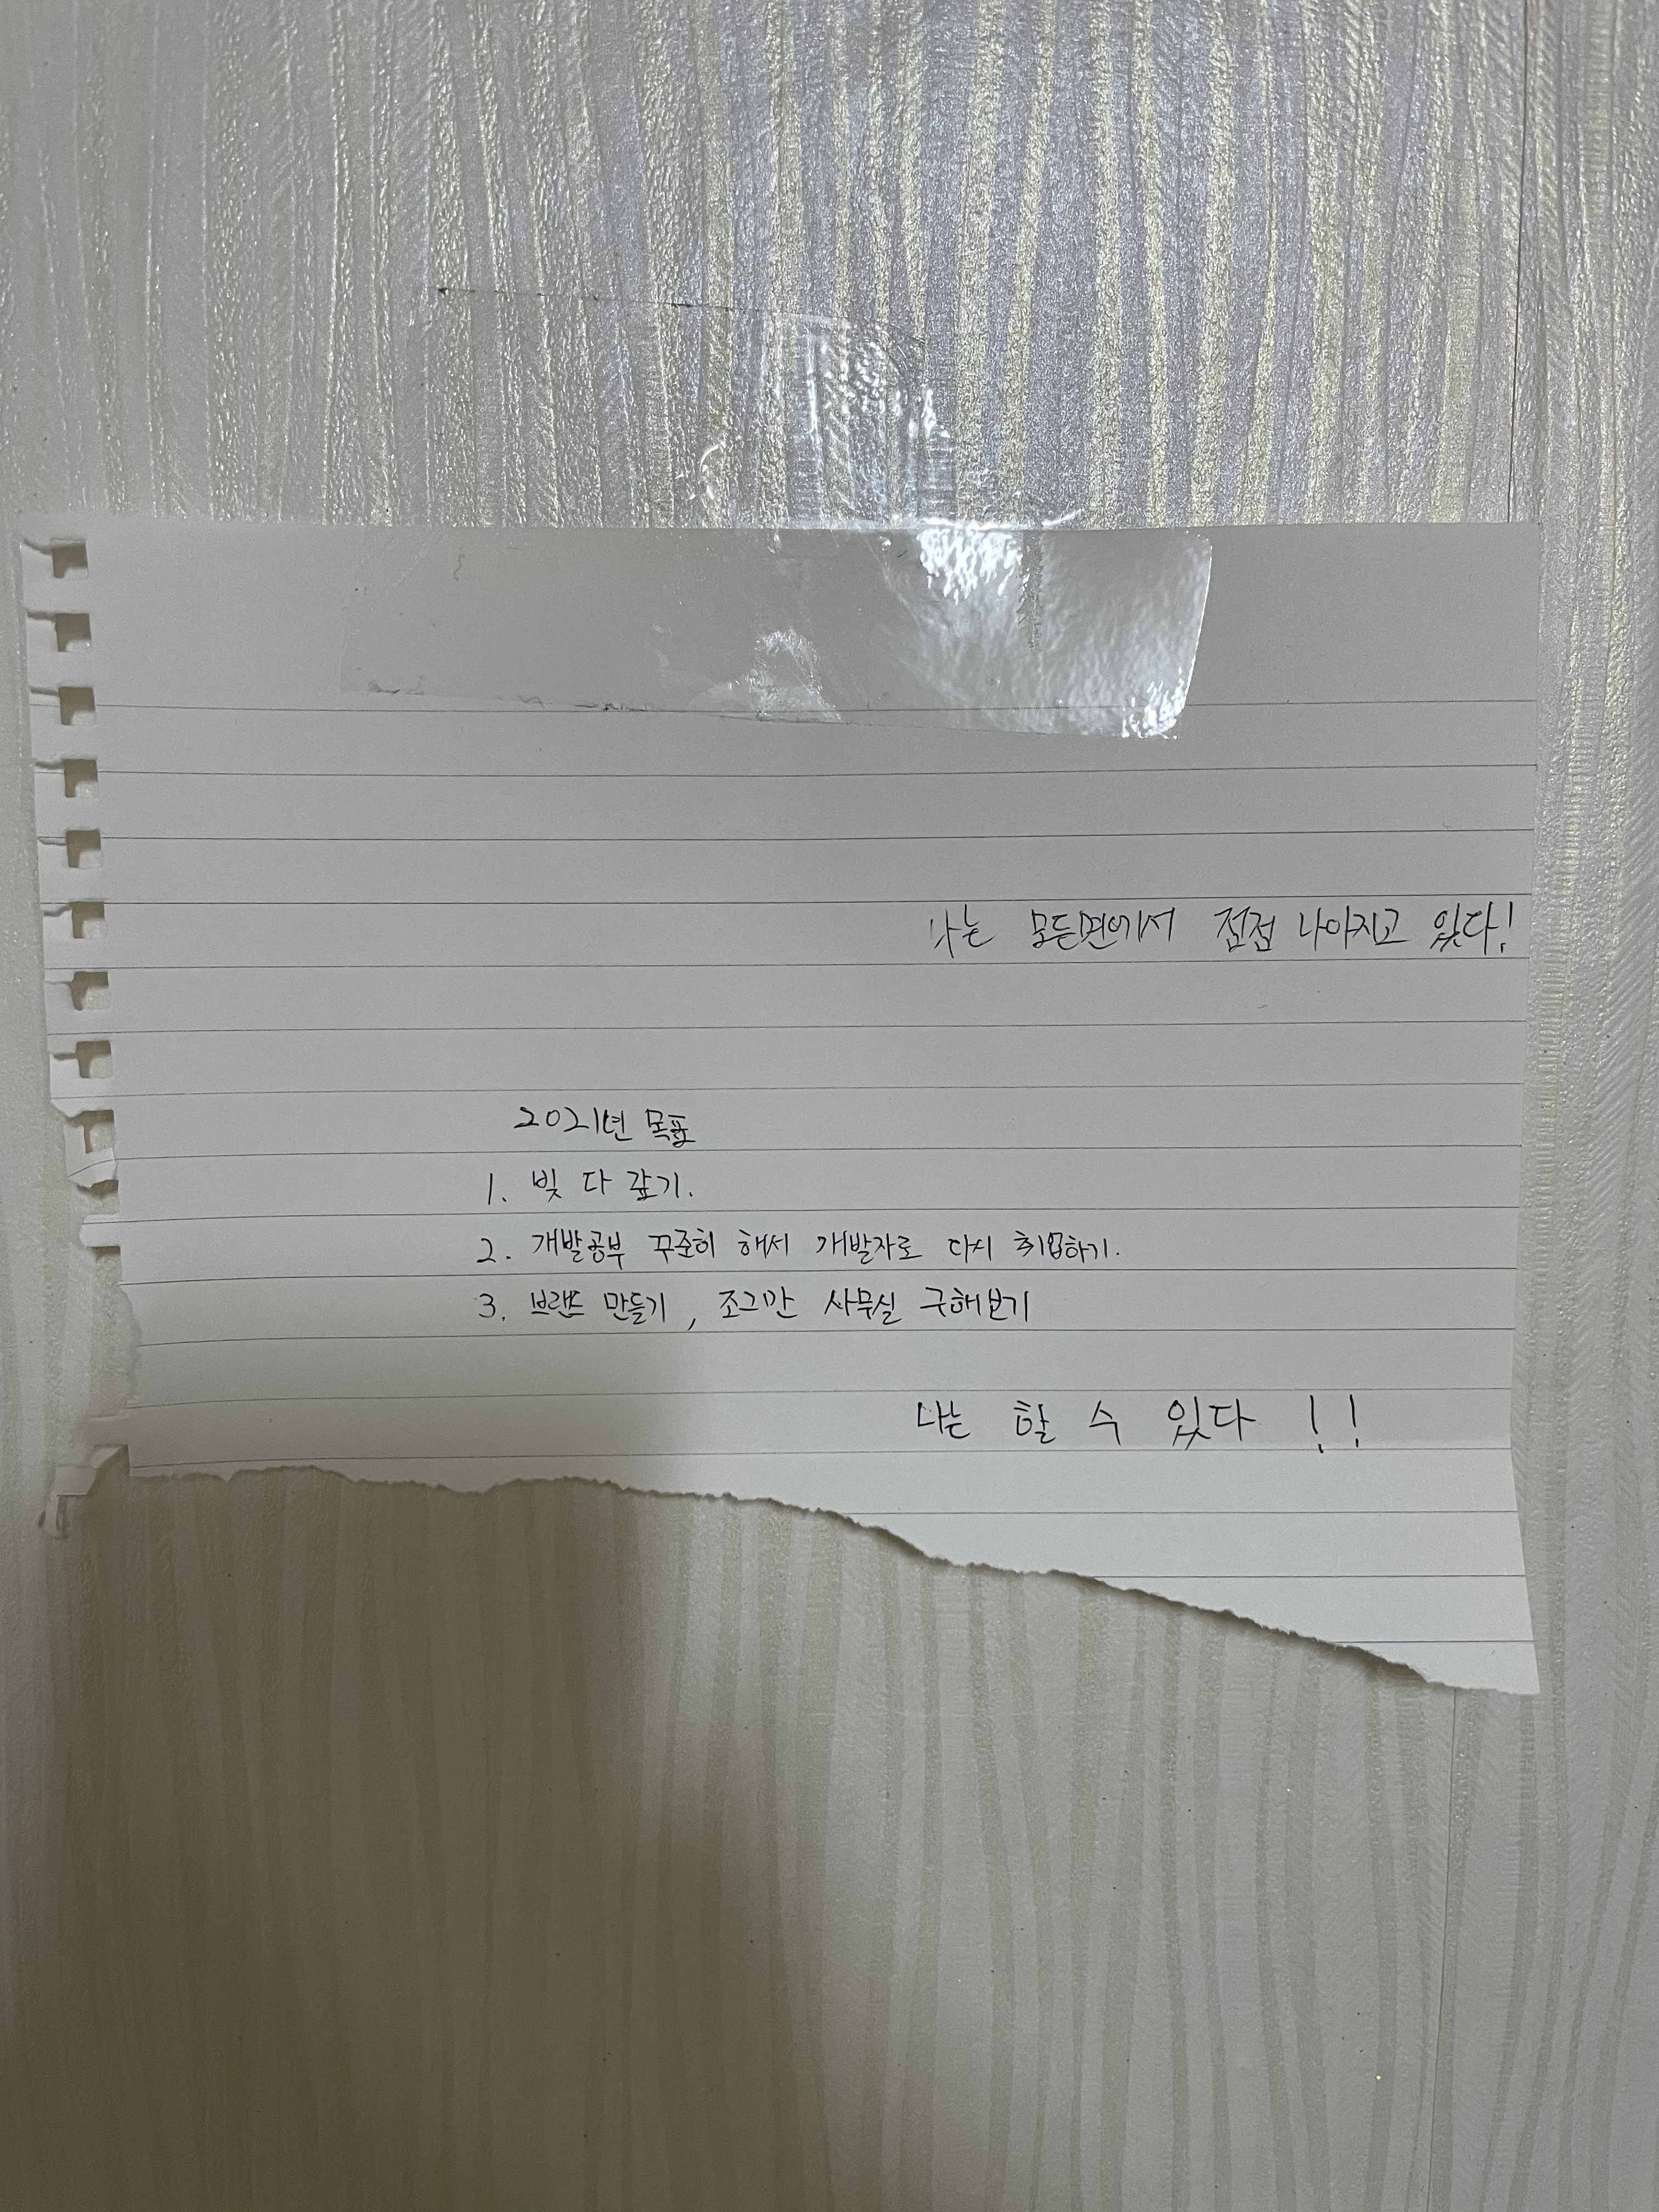 나는 모든면에서 점점 나아지고 있다!
2021년 목표
1. 빚 다 갚기.
2. 개발공부 꾸준히 해서 개발자로 다시 취업하기.
3. 브랜드 만들기, 조그만 사무실 구해보기
나는 할 수 있다 !!